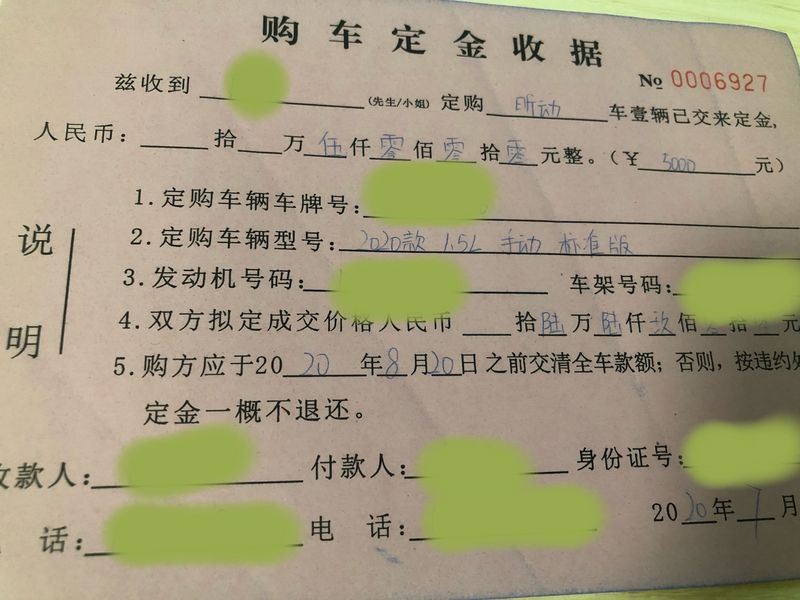 购车定金收据
№ 0006927
兹收到 (先生/小姐) 定购 昕动 车壹辆已交来定金,
人民币: 拾 万 伍 仟 零 佰 零 拾 零 元整。(¥ 5000 元)
说明
1.定购车辆车牌号:
2.定购车辆型号: 2020款 1.5L 手动 标准版
3.发动机号码: 车架号码:
4.双方拟定成交价格人民币 拾 陆 万 陆 仟 玖 佰 拾 元
5.购方应于20 20 年 8 月 20 日之前交清全车款额;否则,按违约处
定金一概不退还。
款人: 付款人: 身份证号:
话: 电 话: 20 20 年 7 月